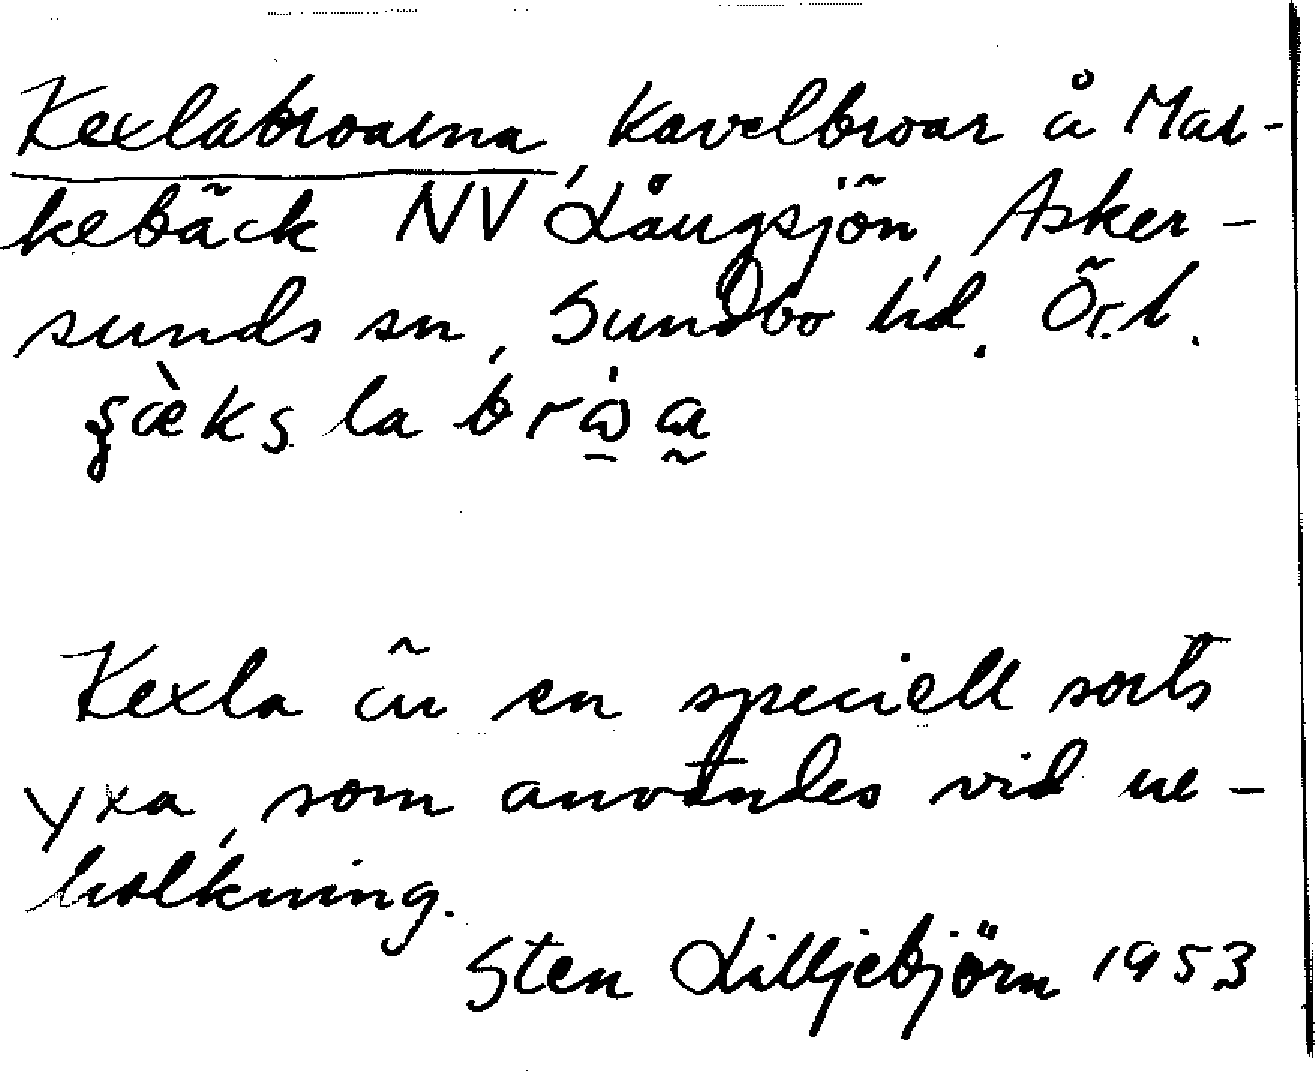 Kexlabroarna, kavelbroar å Mar-
kebäck NV Långsjön, Asker-
sunds sn, Sundbo hd. Ör. l.
la
Kexla är en speciell sorts
yxa, som användes vid ur-
holkning.
Sten Lilljebjörn 1953